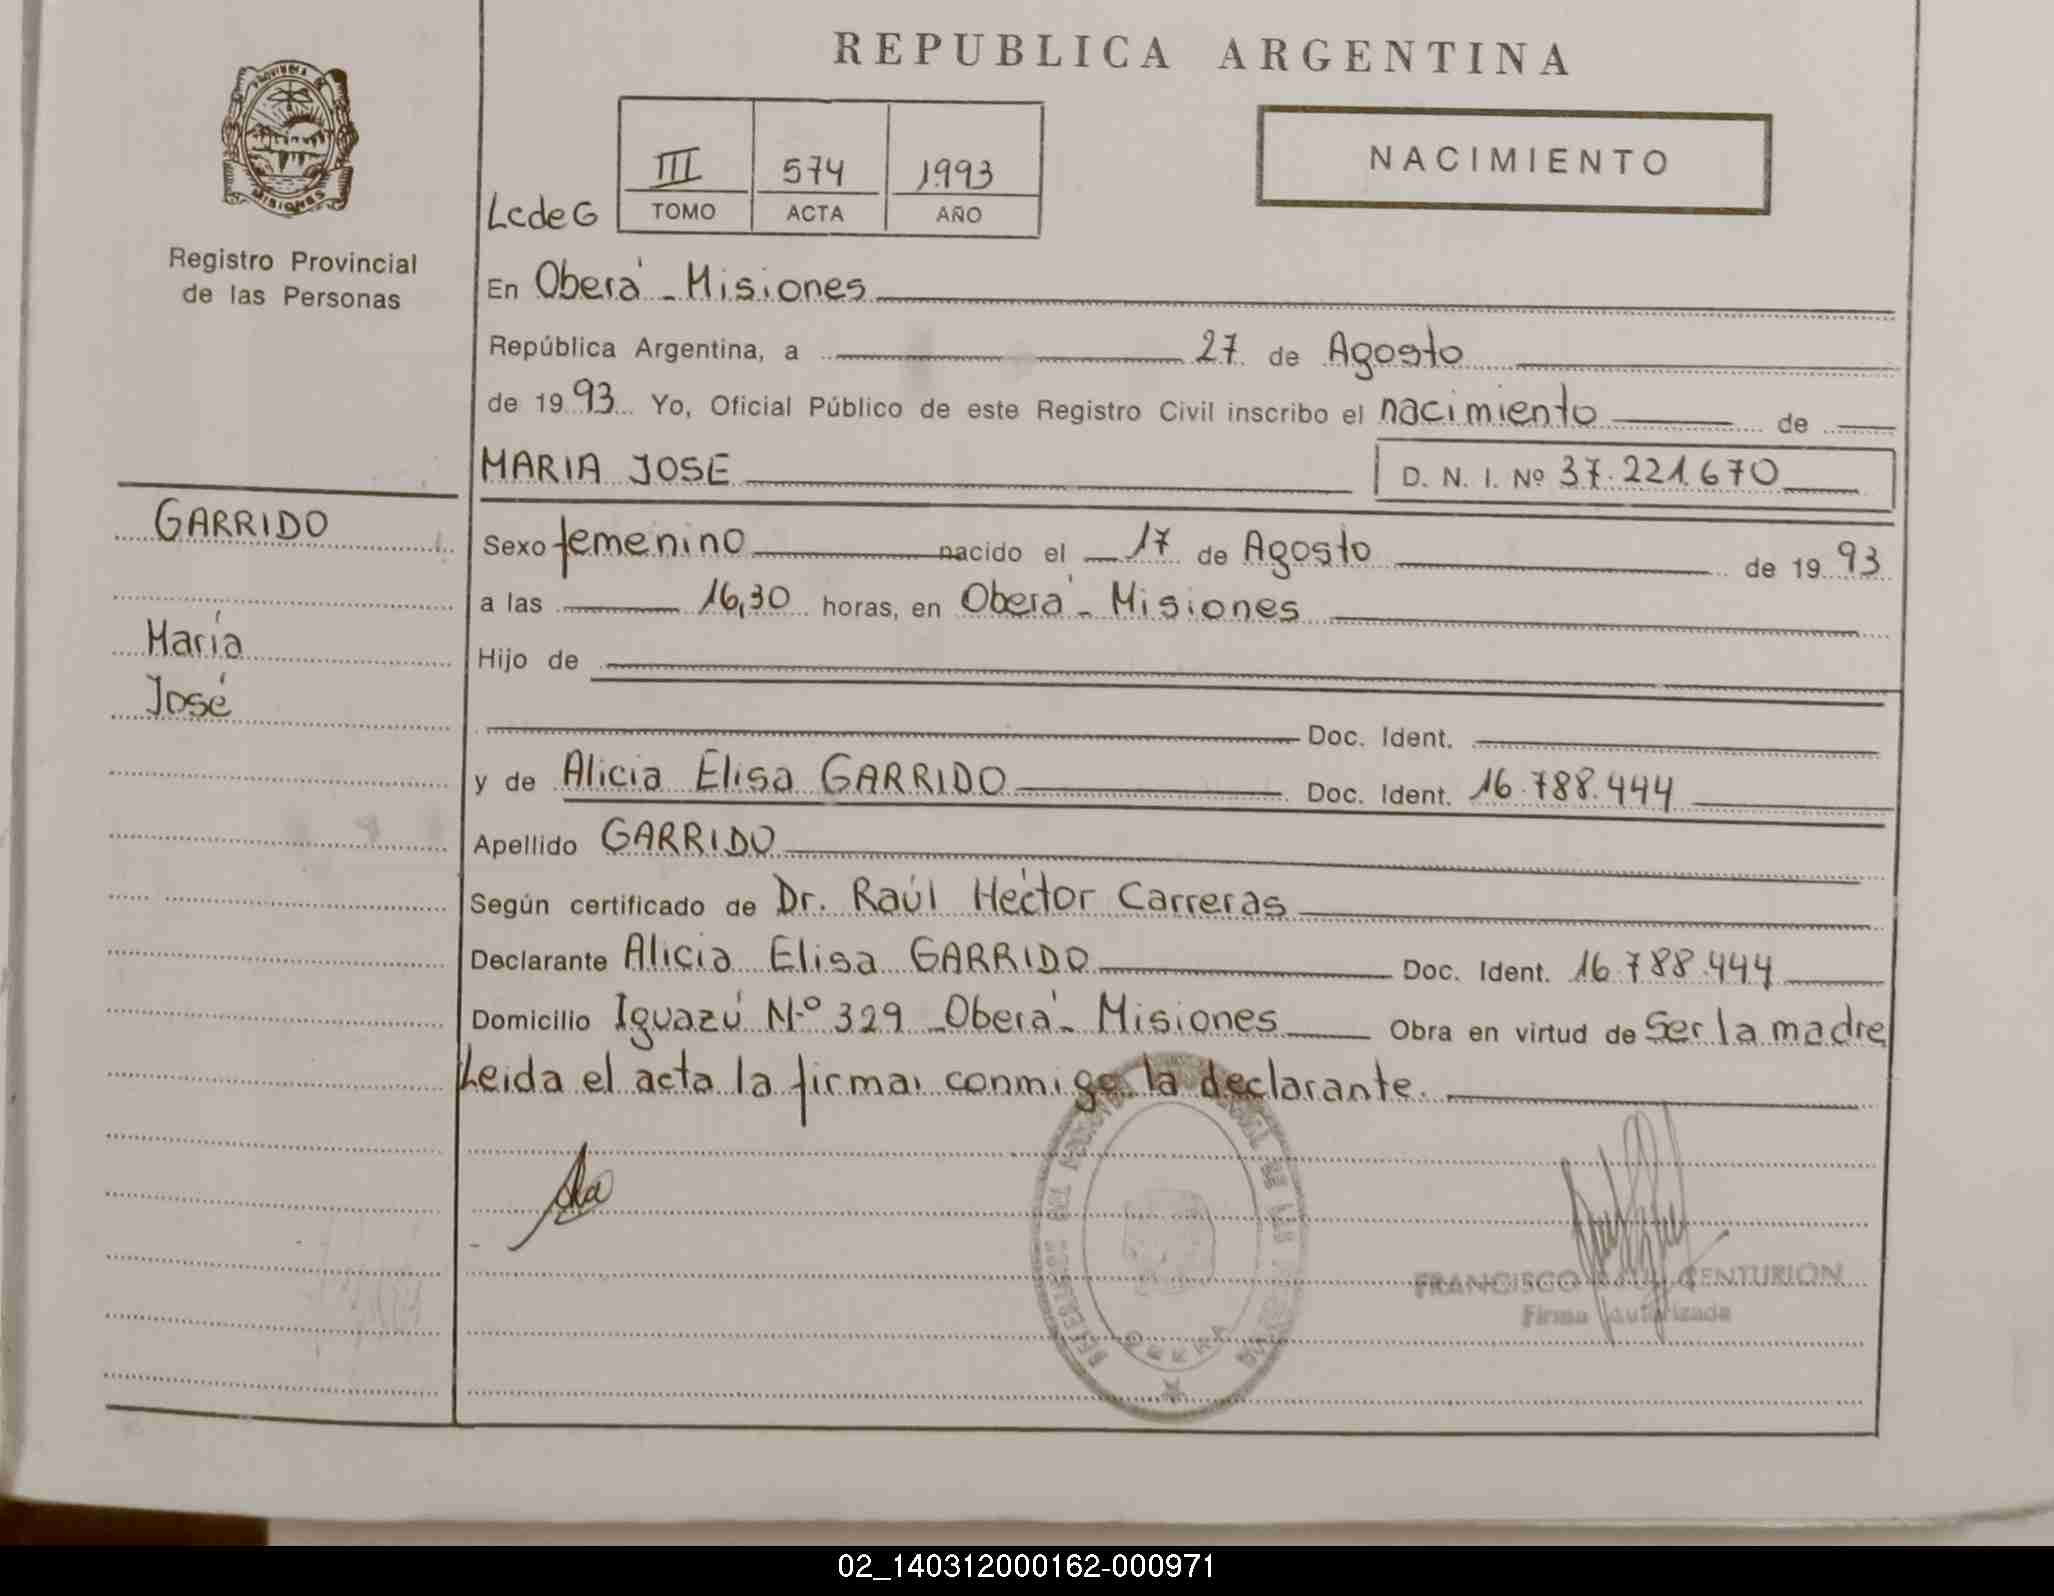 REPUBLICA ARGENTINA
PROVINCIA DE
MISIONES
Registro Provincial
de las Personas
LcdeG
III 574 1993
TOMO ACTA AÑO
NACIMIENTO
En Oberá - Misiones
República Argentina, a 27 de Agosto
de 1993 Yo, Oficial Público de este Registro Civil inscribo el nacimiento de
MARIA JOSE D. N. I. Nº 37.221.670
GARRIDO
María
José
Sexo femenino nacido el 17 de Agosto de 1993
a las 16,30 horas, en Oberá - Misiones
Hijo de
Doc. Ident.
y de Alicia Elisa GARRIDO Doc. Ident. 16.788.444
Apellido GARRIDO
Según certificado de Dr. Raúl Héctor Carreras
Declarante Alicia Elisa GARRIDO Doc. Ident. 16.788.444
Domicilio Iguazú Nº 329 - Oberá - Misiones Obra en virtud de ser la madre
Leida el acta la firma: conmigo la declarante.
OBERA
FRANCISCO CENTURION
Firma Autorizada
02_140312000162-000971